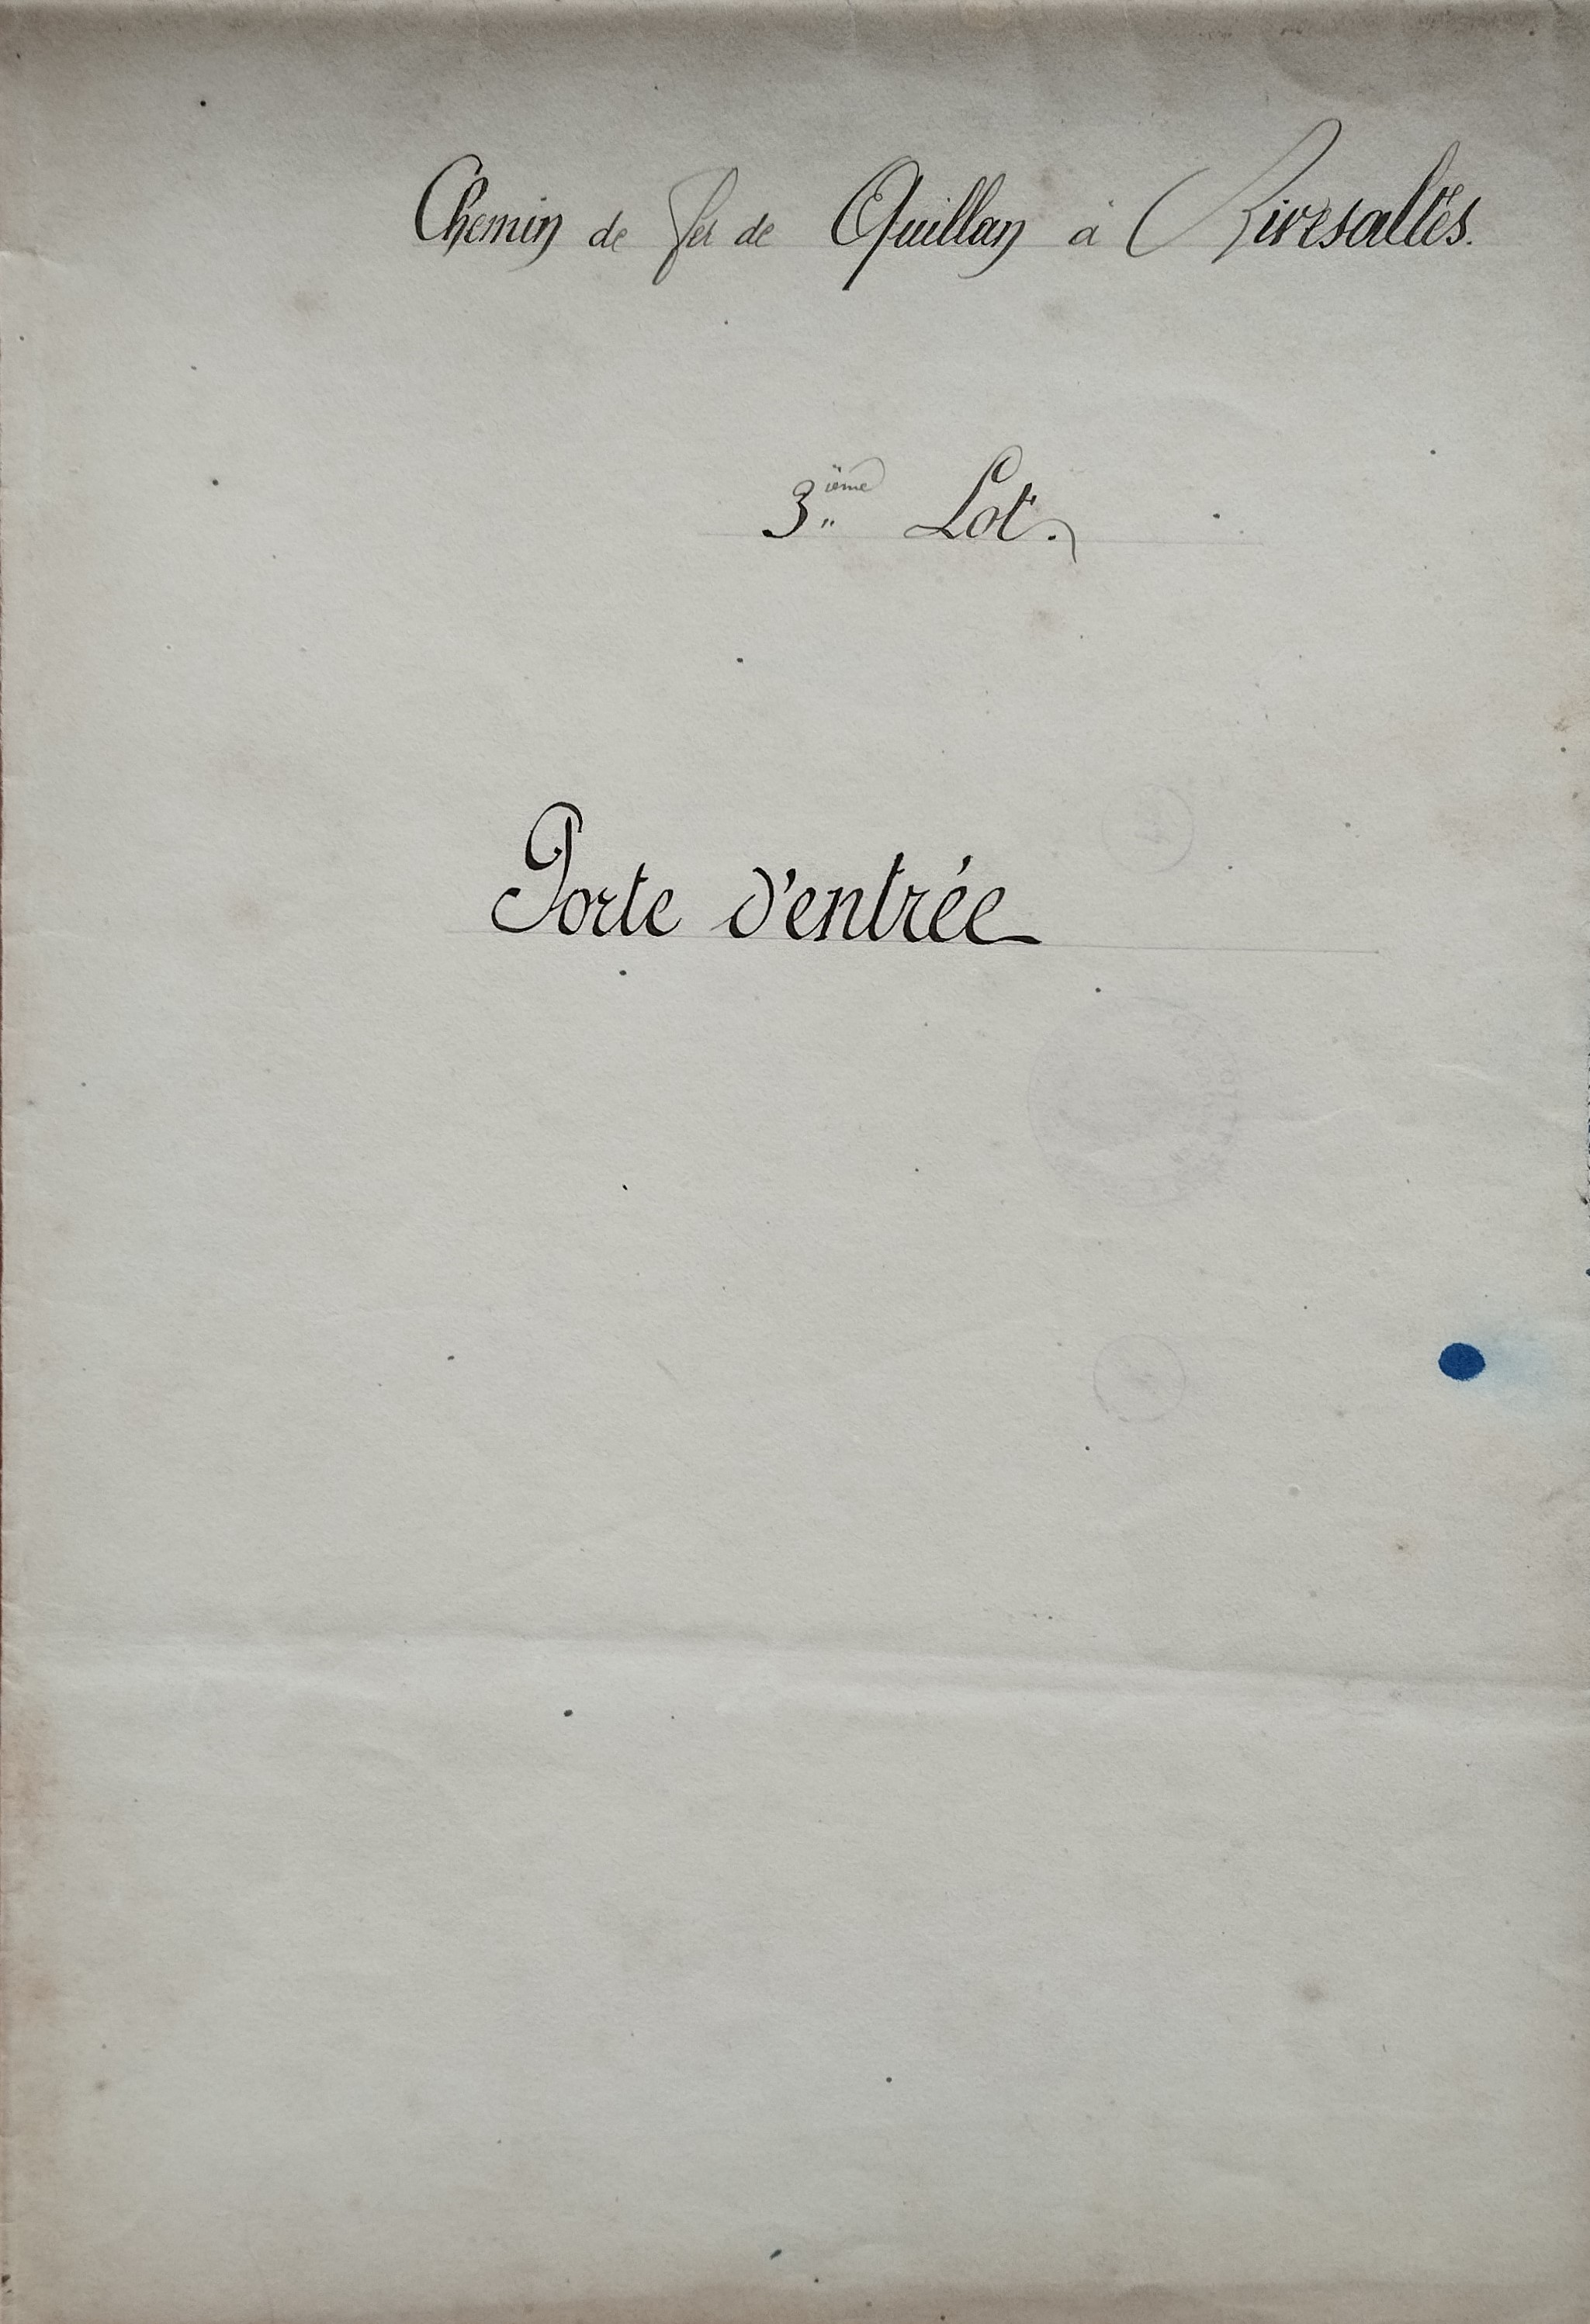 Chemin de fer de Quillan à Rivesaltes.
3ième Lot.
Porte d'entrée